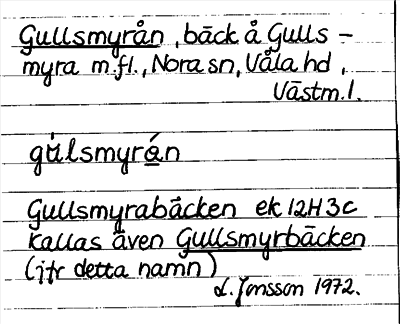 Gullsmyrån, bäck å Gulls-
myra m.fl., Nora sn, Våla hd,
Västm.l.
gùlsmyrán
Gullsmyrabäcken ek 12H3c
kallas även Gullsmyrbäcken
(jfr detta namn)
L. Jonsson 1972.